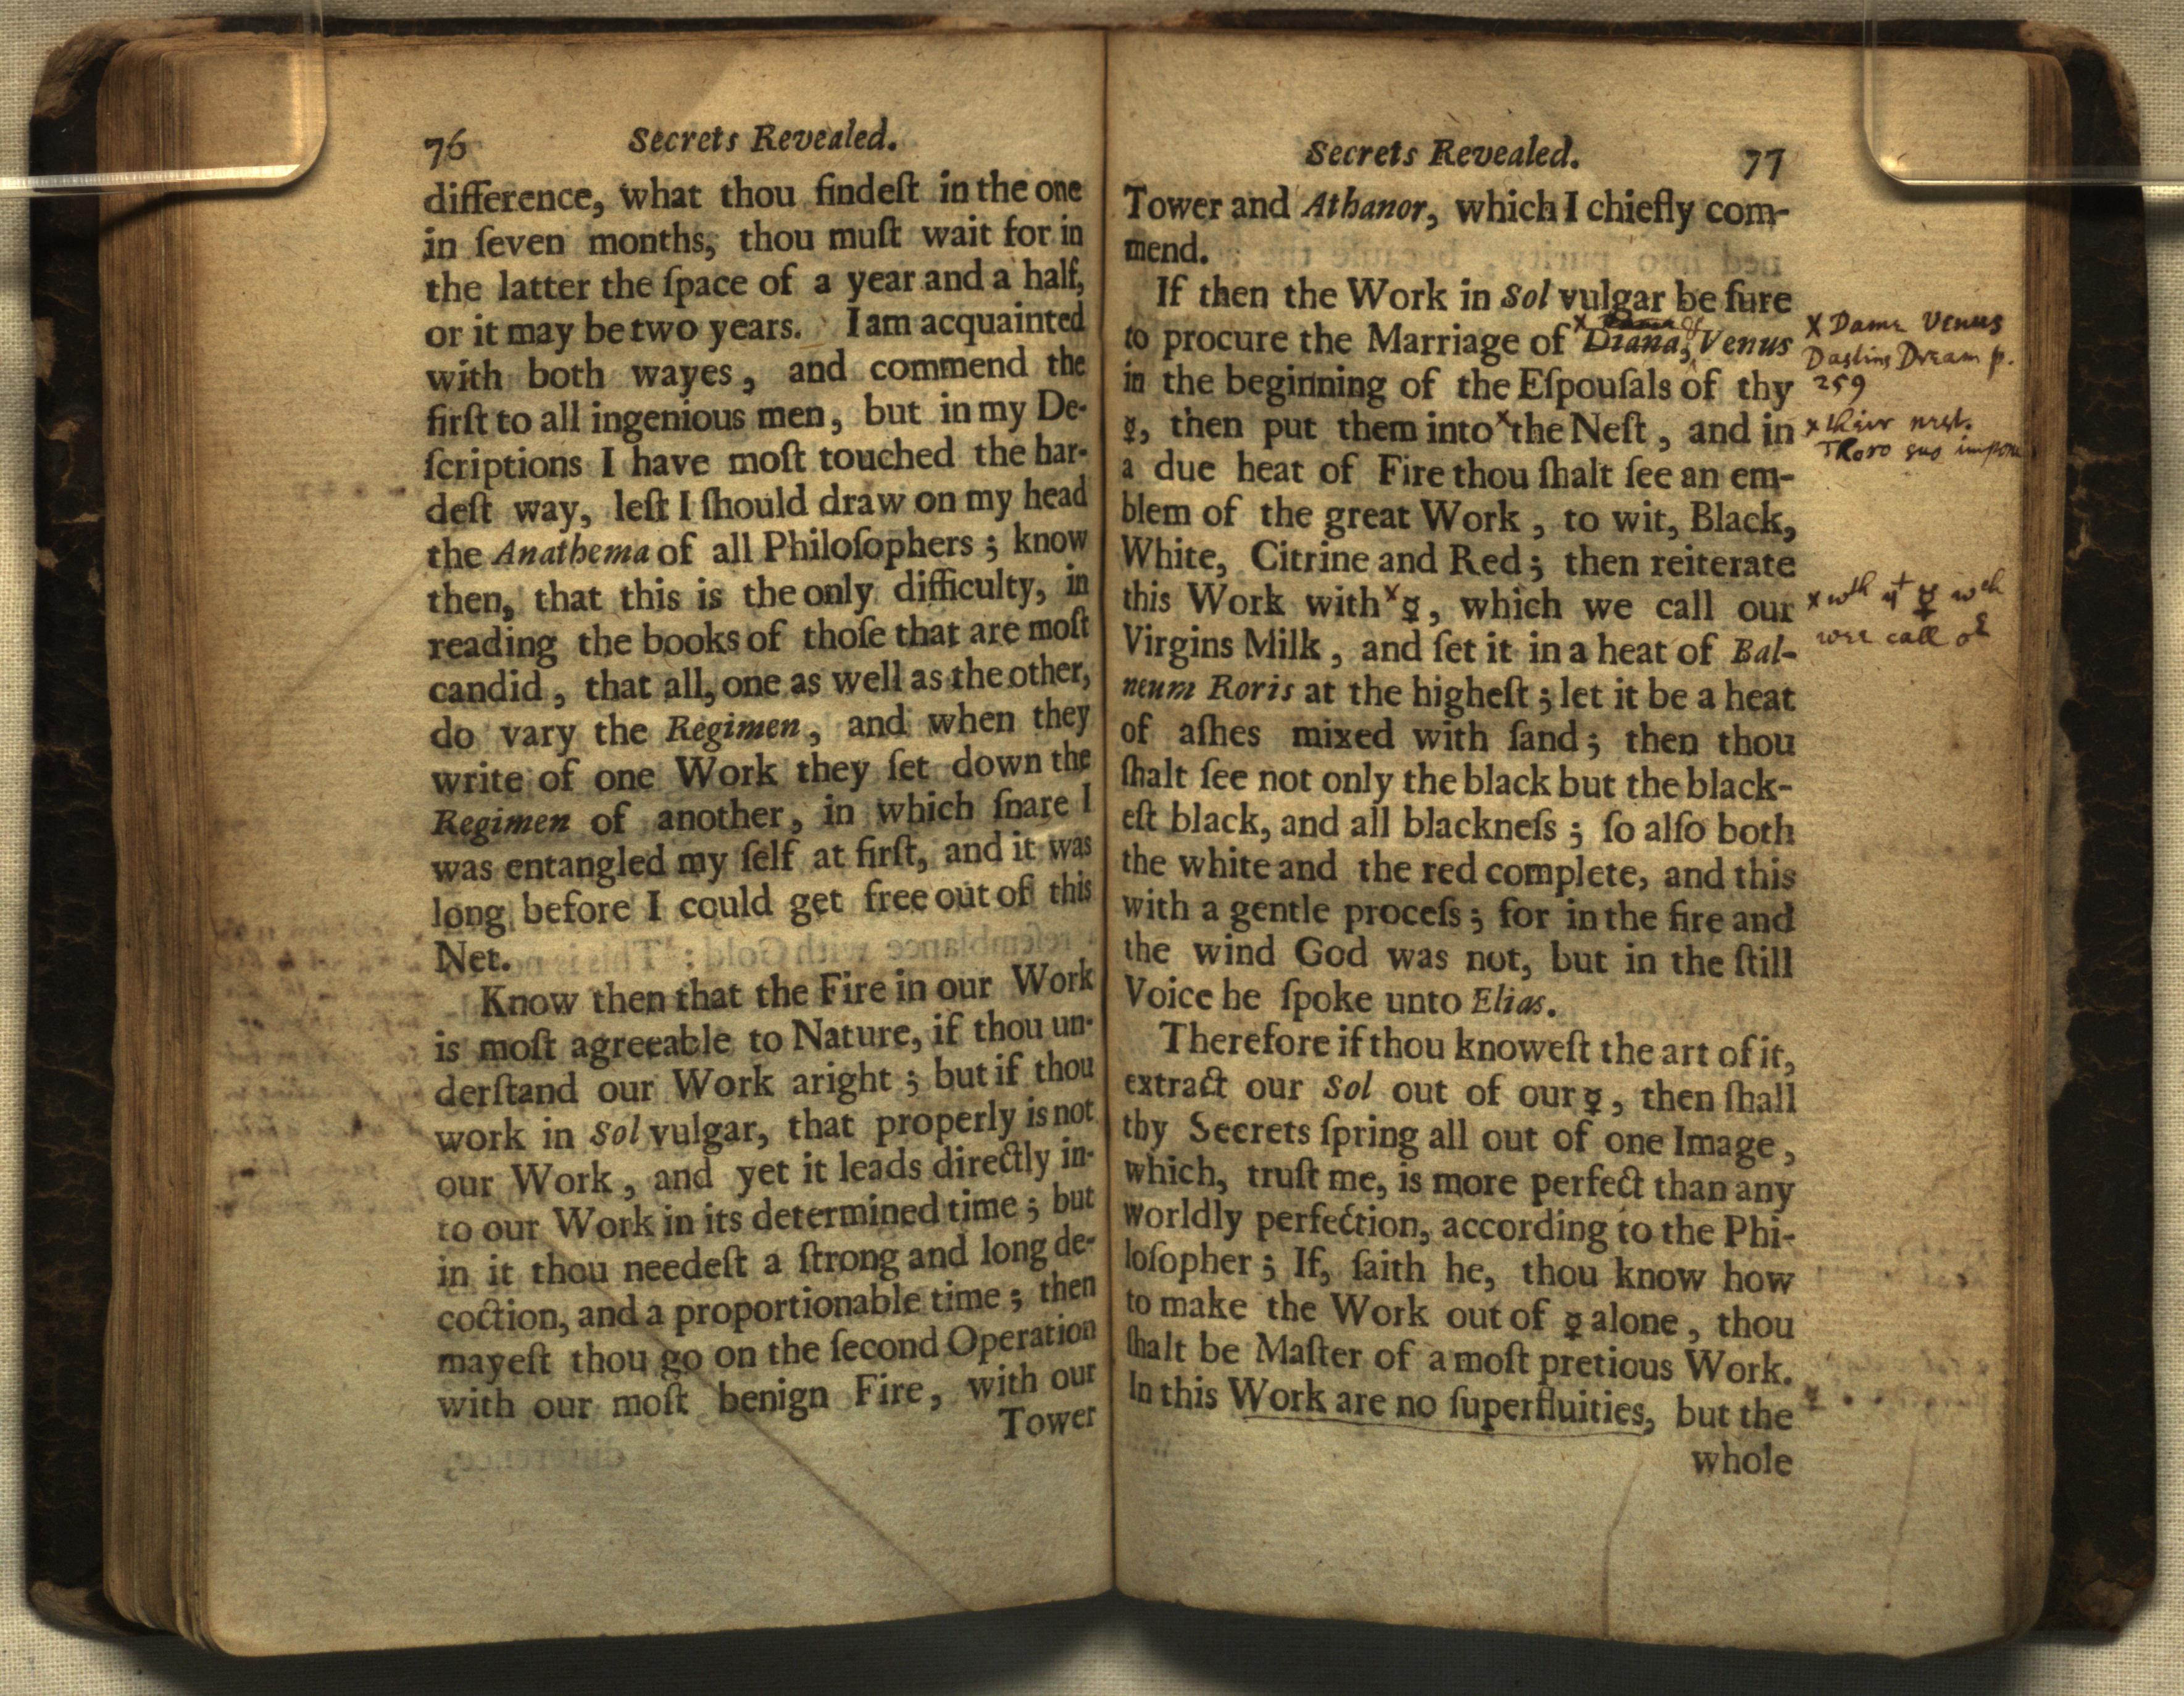 76 Secrets Revealed.
difference, what thou findeſt in the one
in ſeven months, thou muſt wait for in
the latter the ſpace of a year and a half,
or it may be two years. I am acquainted
with both wayes, and commend the
firſt to all ingenious men, but in my De-
ſcriptions I have moſt touched the har-
deſt way, leſt I ſhould draw on my head
the Anathema of all Philoſophers; know
then, that this is the only difficulty, in
reading the books of thoſe that are moſt
candid, that all, one as well as the other,
do vary the Regimen, and when they
write of one Work they ſet down the
Regimen of another, in which ſnare I
was entangled my ſelf at firſt, and it was
long before I could get free out of this
Net.
Know then that the Fire in our Work
is moſt agreeable to Nature, if thou un-
derſtand our Work aright; but if thou
work in Sol vulgar, that properly is not
our Work, and yet it leads directly in-
to our Work in its determined time; but
in it thou needeſt a ſtrong and long de-
coction, and a proportionable time; then
mayeſt thou go on the ſecond Operation
with our moſt benign Fire, with our
Tower
Secrets Revealed. 77
Tower and Athanor, which I chiefly com-
mend.
If then the Work in Sol vulgar be ſure
to procure the Marriage of x Diana, & Venus
in the beginning of the Eſpouſals of thy
☿, then put them into x the Neſt, and in
a due heat of Fire thou ſhalt ſee an em-
blem of the great Work, to wit, Black,
White, Citrine and Red; then reiterate
this Work with x ☿, which we call our
Virgins Milk, and ſet it in a heat of Bal-
neum Roris at the higheſt; let it be a heat
of aſhes mixed with ſand; then thou
ſhalt ſee not only the black but the black-
eſt black, and all blackneſs; ſo alſo both
the white and the red complete, and this
with a gentle proceſs; for in the fire and
the wind God was not, but in the ſtill
Voice he ſpoke unto Elias.
Therefore if thou knoweſt the art of it,
extract our Sol out of our ☿, then ſhall
thy Secrets ſpring all out of one Image,
which, truſt me, is more perfect than any
worldly perfection, according to the Phi-
loſopher; If, ſaith he, thou know how
to make the Work out of ☿ alone, thou
ſhalt be Maſter of a moſt pretious Work.
In this Work are no ſuperfluities, but the
whole
x Dame Venus
Daſtins Dream p.
259
x their nest.
Thoro suo
x wth yt ☿ wch
wee call